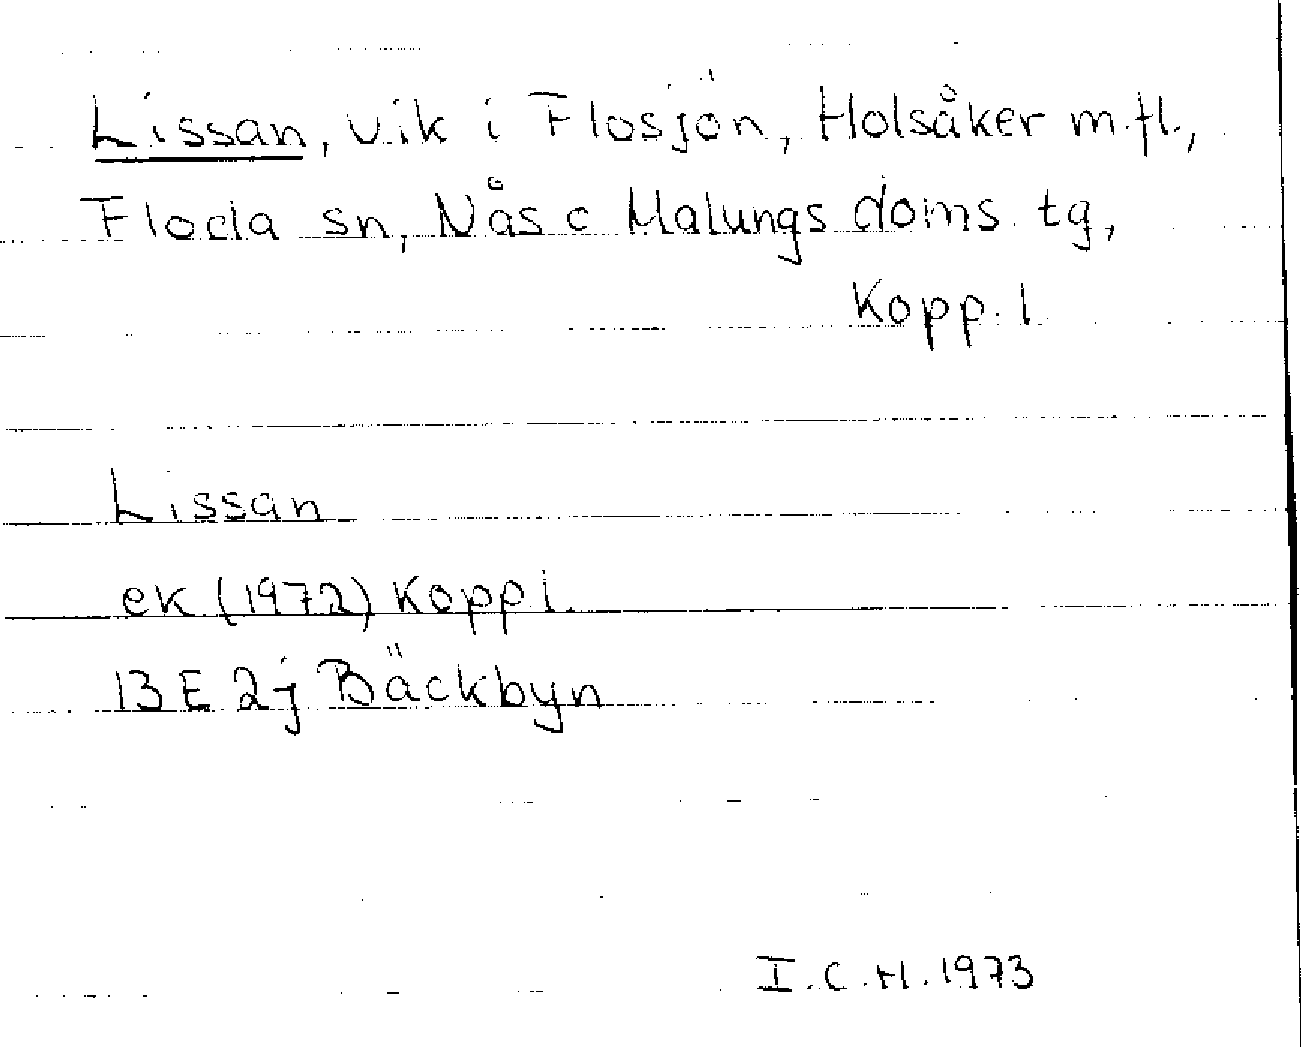 Lissan, vik i Flosjön, Holsåker m.fl.,
Floda sn, Nås o Malungs doms. tg,
Kopp. l.
Lissan
ek (1972) Kopp l.
13 E 2j Bäckbyn
I.C.H. 1973